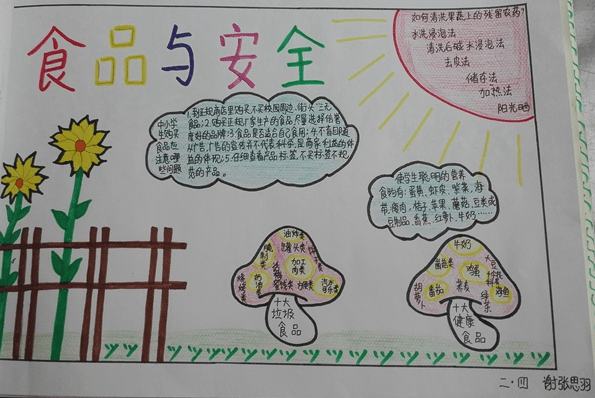 食品与安全
如何清洗果蔬上的残留农药?
水洗浸泡法
清洗后碱水浸泡法
去皮法
储存法
加热法
阳光晒
中小学
生购买
食品应
注意哪
些问题
1.到正规商店里购买,不买校园周边、街头"三无
食品;2.购买正规厂家生产的食品,尽量选择信誉
度好的品牌;3.食品是否适合自己食用;4.不盲目随
从广告,广告的宣传并不代表科学,是商家利益的体
5.仔细查看产品标签,不买标签不规
范的产品。
使学生聪明的营养
食物有:蛋黄、虾皮、紫菜、海
带、瘦肉、桔子、苹果、蘑菇、豆类或
豆制品、香蕉、红萝卜、牛奶……
油炸类
罐头类
加工
肉类
烧烤类
方便类
十大
垃圾
食品
牛奶
番茄
胡萝卜
绿茶
十大
健康
食品
二·四 谢张思羽